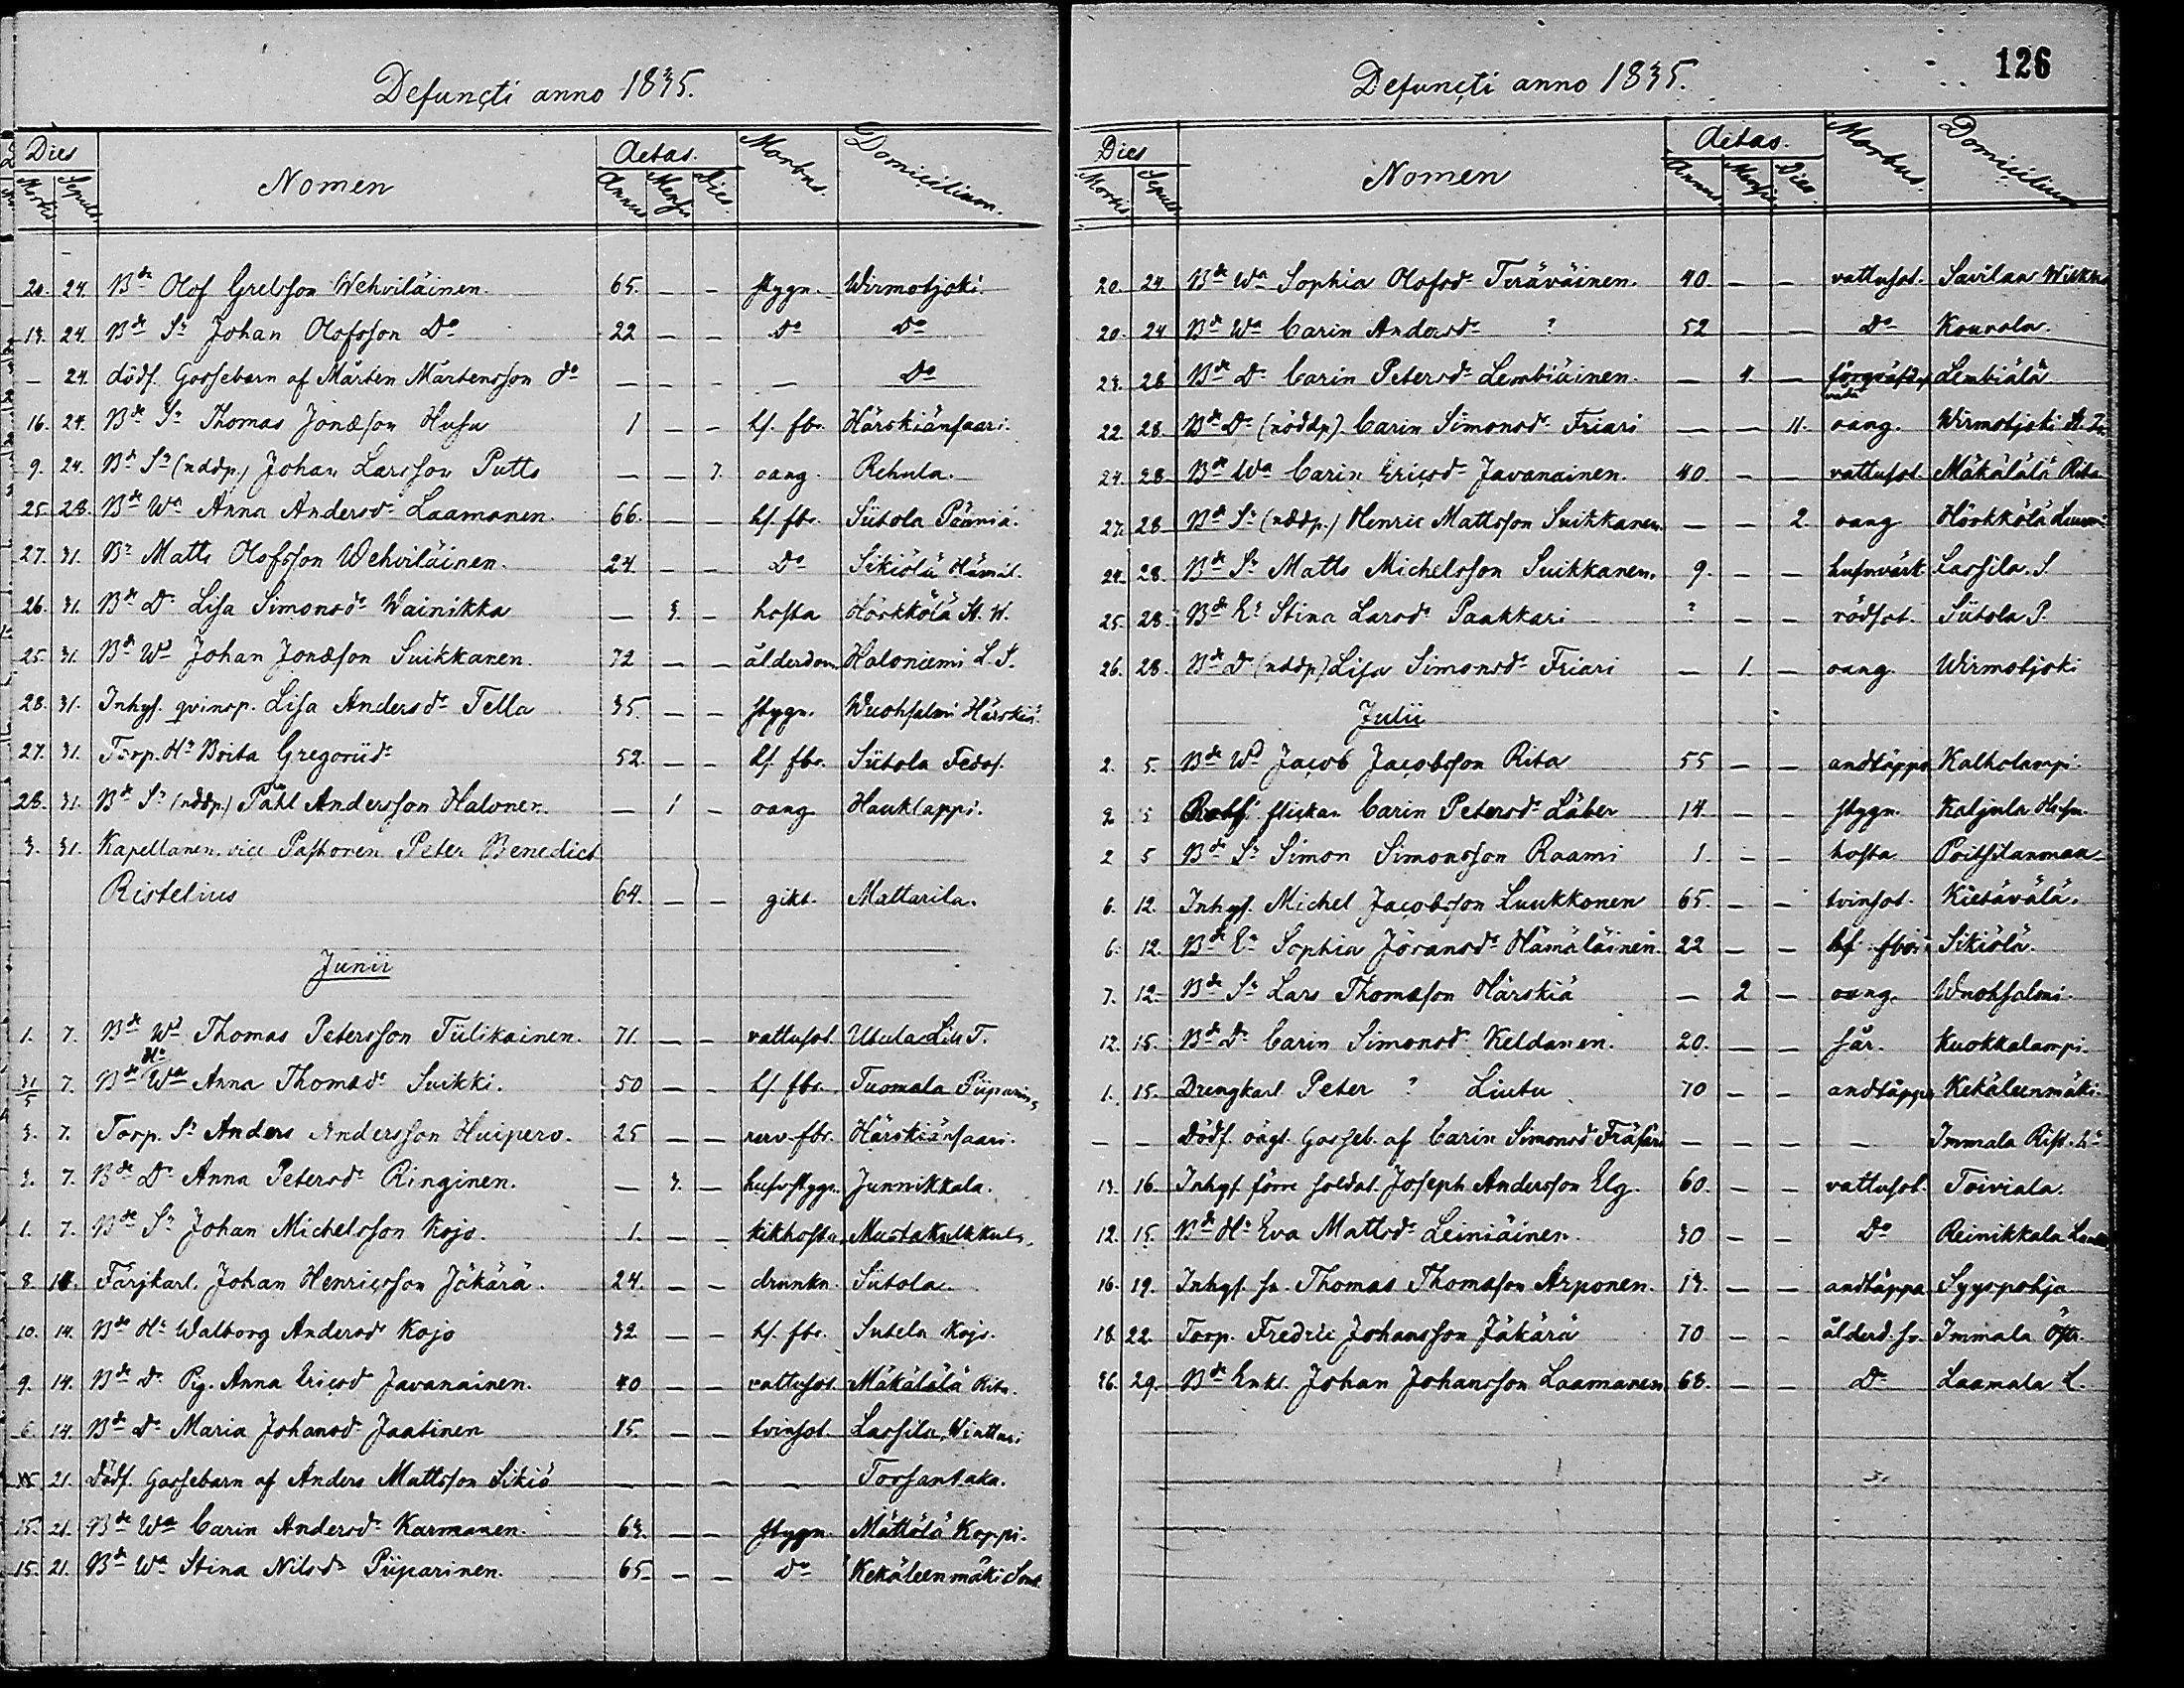 Defuncti anno 1835.
Dies Nomen Aetas. Morbus. Domicilium.
Mortis Sepult. Annus Mensis Dies.
20. 24. Bde Olof Grelsson Wehviläinen. 65. — — stygn. Wirmotjoki.
13. 24. Bde Sn Johan Olofsson Do 22 — — Do Do
— 24. dödf. Gossebarn af Mårten Mårtensson do — — — — Do
16. 24. Bde Sn Thomas Jonæson Husu 1 — — hf. fbr. Härskiänsaari.
9. 24. Bde Sn (nddp.) Johan Larsson Putto — — 7. oang. Rehula.
25. 28. Bde Wa Anna Andersdr Laamanen. 66. — — hf. fbr. Siitola Pöüniä.
27. 31. Bn Matts Olofsson Wehviläinen. 24. — — Do Sikiölä Hämäl.
26. 31. Bde Dr Lisa Simonsdr Wainikka — 3. — hosta Hörkkölä St. W.
25. 31. Bde Wd Johan Jonæson Suikkanen. 72 — — ålderdom. Haloniemi L. S.
28. 31. Inhys. qvinsp. Lisa Andersdr Tella 35. — — stygn. Wuohsalmi Härskiä.
27. 31. Torp. Hu Brita Gregoriidr 52. — — hf. fbr. Siitola Fedof.
28. 31. Bde Sn (nddp.) Påhl Andersson Halonen. — 1 — oang. Hauklappi.
3. 31. Kapellanen, vice Pastoren Peter Benedict
Ristelius 64. — — gikt. Mattarila.
Junii
1. 7. Bde Wd Thomas Petersson Tiilikainen. 71. — — vattusot. Utula Lill T.
31/5 7. Bde Hu Wa Anna Thomædr Suikki. 50 — — hf. fbr. Tuomala Piiparin.
3. 7. Torp. Sn Anders Andersson Huipero. 25 — — nerv. fbr. Härskiänsaari.
2. 7. Bde Dr Anna Petersdr Ringinen. — 3. — hufvstygn. Junnikkala.
1. 7. Bde Sn Johan Michelsson Kojo. 1. — — kikhosta. Mustakulkkula.
8. 14. Färjkarl. Johan Henricsson Jäkärä. 24. — — drunkn. Siitola.
10. 14. Bde Hu Walborg Andersdr Kojo 32. — — hf. fbr. Sutela Kojo.
9. 14. Bde Dr Pig. Anna Ericsdr Javanainen. 40 — — vattusot. Mäkälälä Rita.
6. 14. Bde Dr Maria Johansdr Jaatinen 15. — — tvinsot. Lassila, Winttari
15 21. Dödf. Gossebarn af Anders Mattsson Sikiö — — — — Torsantaka.
15. 21. Bde Wa Carin Andersdr Karmanen. 63. — — stygn. Mättölä Koppi.
15. 21. Bde Wa Stina Nilsdr Piiparinen. 65. — — Do Kekäleenmäki
126
Defuncti anno 1835.
Dies Nomen Aetas. Morbus. Domicilium
Mortis Sepult. Annus. Mensis. Dies.
20. 24 Bde Wa Sophia Olofsdr Teräväinen. 40. — — vattusot. Savilax
20. 24 Bde Wa Carin Andersdr ? 52 — — Do Kouvola.
23. 28 Bde Dr Carin Petersdr Lembiäinen. — 4. — Lembiälä
22. 28. Bde Dr (nöddp). Carin Simonsdr Friari — — 11. oang. Wirmotjoki
24. 28. Bde Wa Carin Ericsdr Javanainen. 40. — — vattusot. Mäkälälä Rita
27. 28 Bde Sn (nddp.) Henric Mattsson Suikkanen. — — 2. oang Hörkkölä
24. 28. Bde Sn Matts Michelsson Suikkanen. 9. — — hufvvärk Lassila. S.
25. 28. Bde En Stina Larsdr Paakkari ? — — rödsot. Siitola P.
26. 28. Bde Dr (nddp) Lisa Simonsdr Friari — 1. — oang. Wirmotjoki
Julii
2. 5. Bde Wd Jacob Jacobsson Rita 55 — — andtäppa Kalholampi.
2. 5 flickan Carin Petersdr Läber 14. — — stygn. Kaljula Husu.
2 5 Bde Sn Simon Simonsson Raami 1. — — hosta Poitsilanmaa
6. 12. Inhys. Michel Jacobsson Luukkonen 65. — — tvinsot. Kietävälä.
6. 12. Bde En Sophia Jöransdr Hämäläinen. 22 — — hf. fbr. Sikiölä.
7. 12. Bde Sn Lars Thomæson Härskiä — 2 — oang. Wuohsalmi.
12. 15. Bde Dr Carin Simonsdr Keldanen. 20. — — sår. Kuokkalampi.
1. 15. Drengkarl Peter ? Liutu 70 — — andtäppa Kekäleenmäki.
— — Dödf. oägt. Gosseb. af Carin Simonsd Fräsäri — — — — Immala Rist.
13. 16. Inhys. förre soldat. Joseph Andersson Elg. 60. — — vattusot. Toiviala.
12. 15. Bde Hu Eva Mattsdr Leiniäinen. 30 — — Do Reinikkala
16. 19. Inhys. sn. Thomas Thomæson Arponen. 13. — — andtäppa Syyspohja
18. 22. Torp. Fredric Johansson Jäkärä 70 — — ålderd. sv. Immala Öfr.
26. 29. Bde Enkl. Johan Johansson Laamanen 68. — — Do Laamala L.